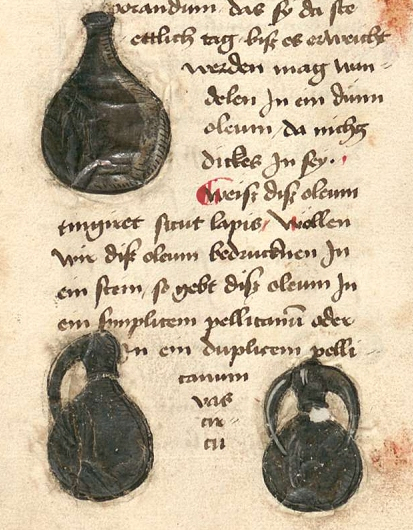 porandum das sÿ da ste
ettlich tag bisz es erweicht
werden mag wan-
delen Jn ein dünn
oleum da nichʒ
dickes Jn seÿ.
Weisz disz oleum
tingiret sicut lapis, Wöllen
wir disz oleum bedrucknen Jn
ein stein, so gebt disz oleum Jn
em simplicem pellicanū oder
Jn ein duplicem pelli
canum
vas
cir
cu